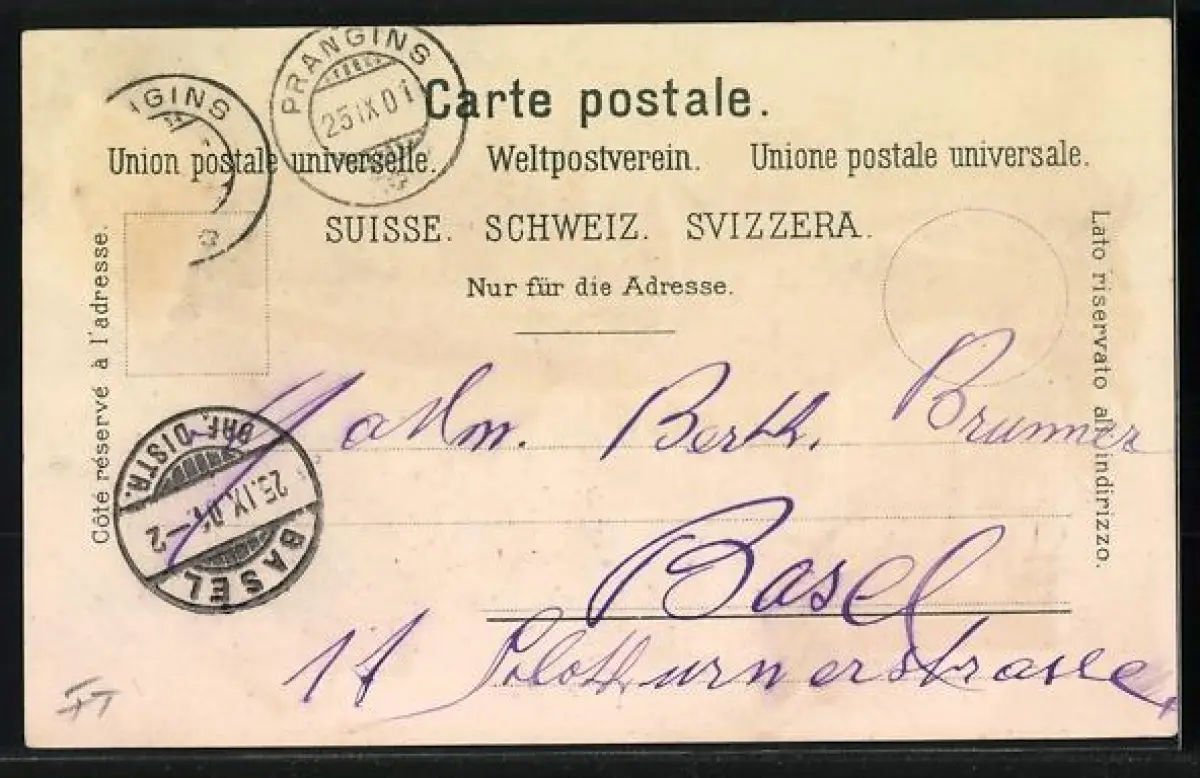 PRANGINS
25 IX 01
GINS
Carte postale.
Union postale universelle. Weltpostverein. Unione postale universale.
SUISSE. SCHWEIZ. SVIZZERA.
Nur für die Adresse.
Côté réservé à l'adresse.
Lato riservato all'indirizzo.
Madm. Berth. Brunner
Basel
11 Solothurnerstrasse
BRF. DISTR.
25.IX.01.-2
BASEL